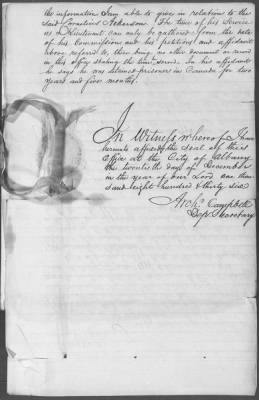 the information I am able to give in relation to the
said Cornelius Ackerson. The time of his Service
as a Lieutenant can only be gathered from the date
of his Commission and his petition and affidavit
above referred to, there being no other document on record
in this office stating the time served. In his affidavit
he says he was detained prisoner in Canada for two
years and five months.
In Witness whereof I have
hereunto affixed the seal of this
Office at the City of Albany
this twentieth day of December
in the year of our Lord one thou
sand eight hundred & thirty six
Archd. Campbell
Dep. Secretary